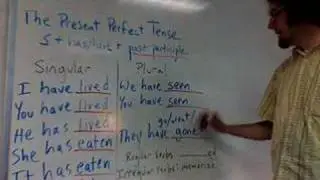 The Present Perfect Tense
S + has/have + past participle
Singular
I have lived
You have lived
He has lived
She has eaten
It has eaten
Plural
We have seen
You have seen
go/went/
They have gone
Regular verbs ed
Irregular verbs: memorize